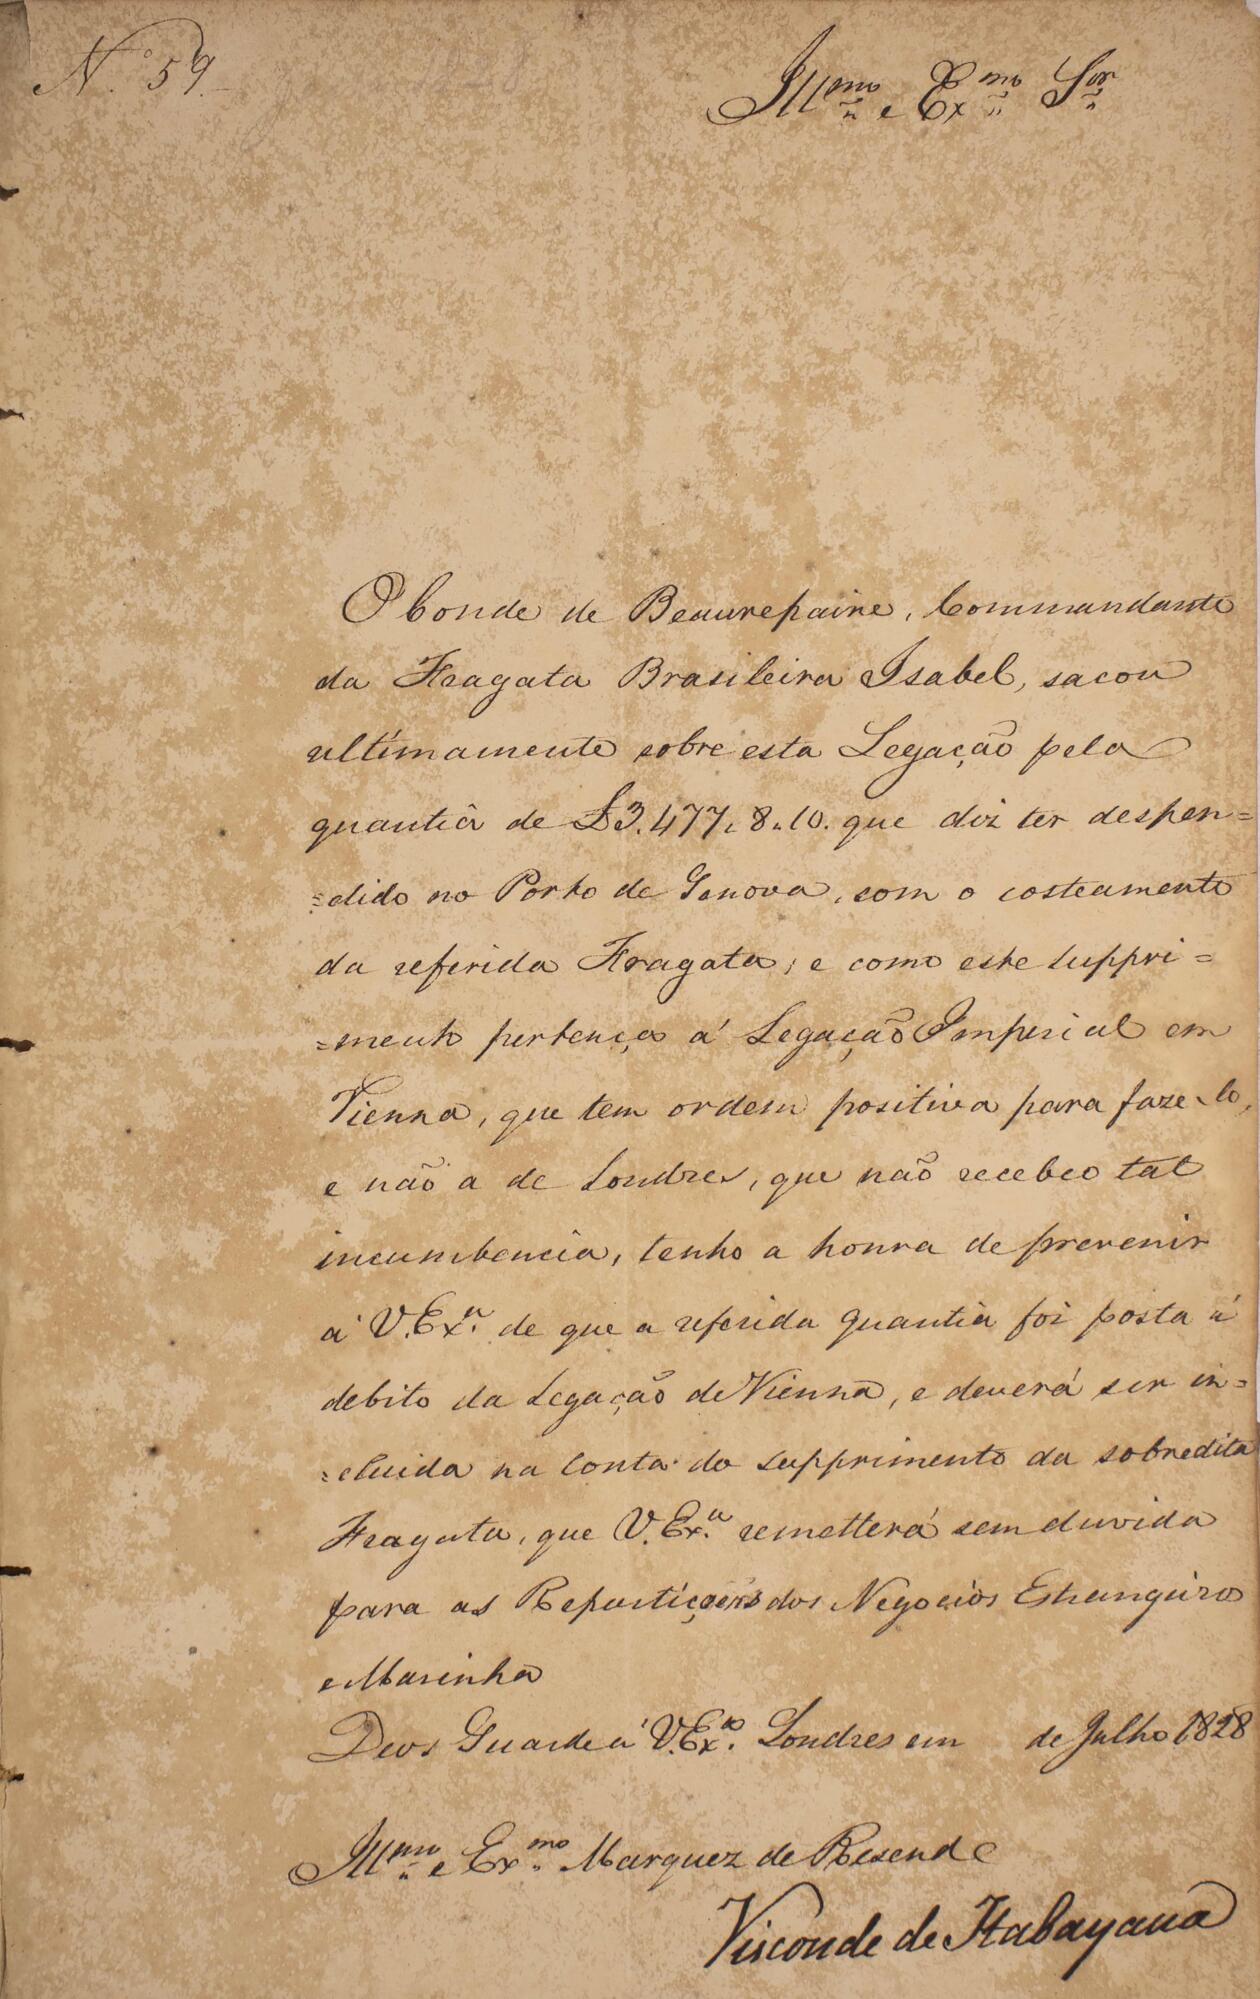 Nº 59.
Illmo e Exmo Sor
O Conde de Beaurepaire, Commandante
da Fragata Brasileira Isabel, sacou
ultimamente sobre esta Legação pela
quantia de £3.477. 8. 10. que diz ter despen=
=dido no Porto de Genova, com o costeamento
da referida Fragata; e como este suppri=
=mento pertença á Legação Imperial em
Vienna, que tem ordem positiva para faze-lo,
e não a de Londres, que não recebeo tal
incumbencia, tenho a honra de prevenir
á V. Exa. de que a referida quantia foi posta á
debito da Legação de Vienna, e deverá ser in=
=cluida na Conta do supprimento da sobredita
Fragata, que V. Exa. remetterá sem duvida
para as Repartiçoens dos Negocios Estrangeiros
e Marinha
Deos Guarde á V. Exa. Londres em de Julho 1828
Illmo e Exmo Marquez de Resende
Visconde de Itabayana